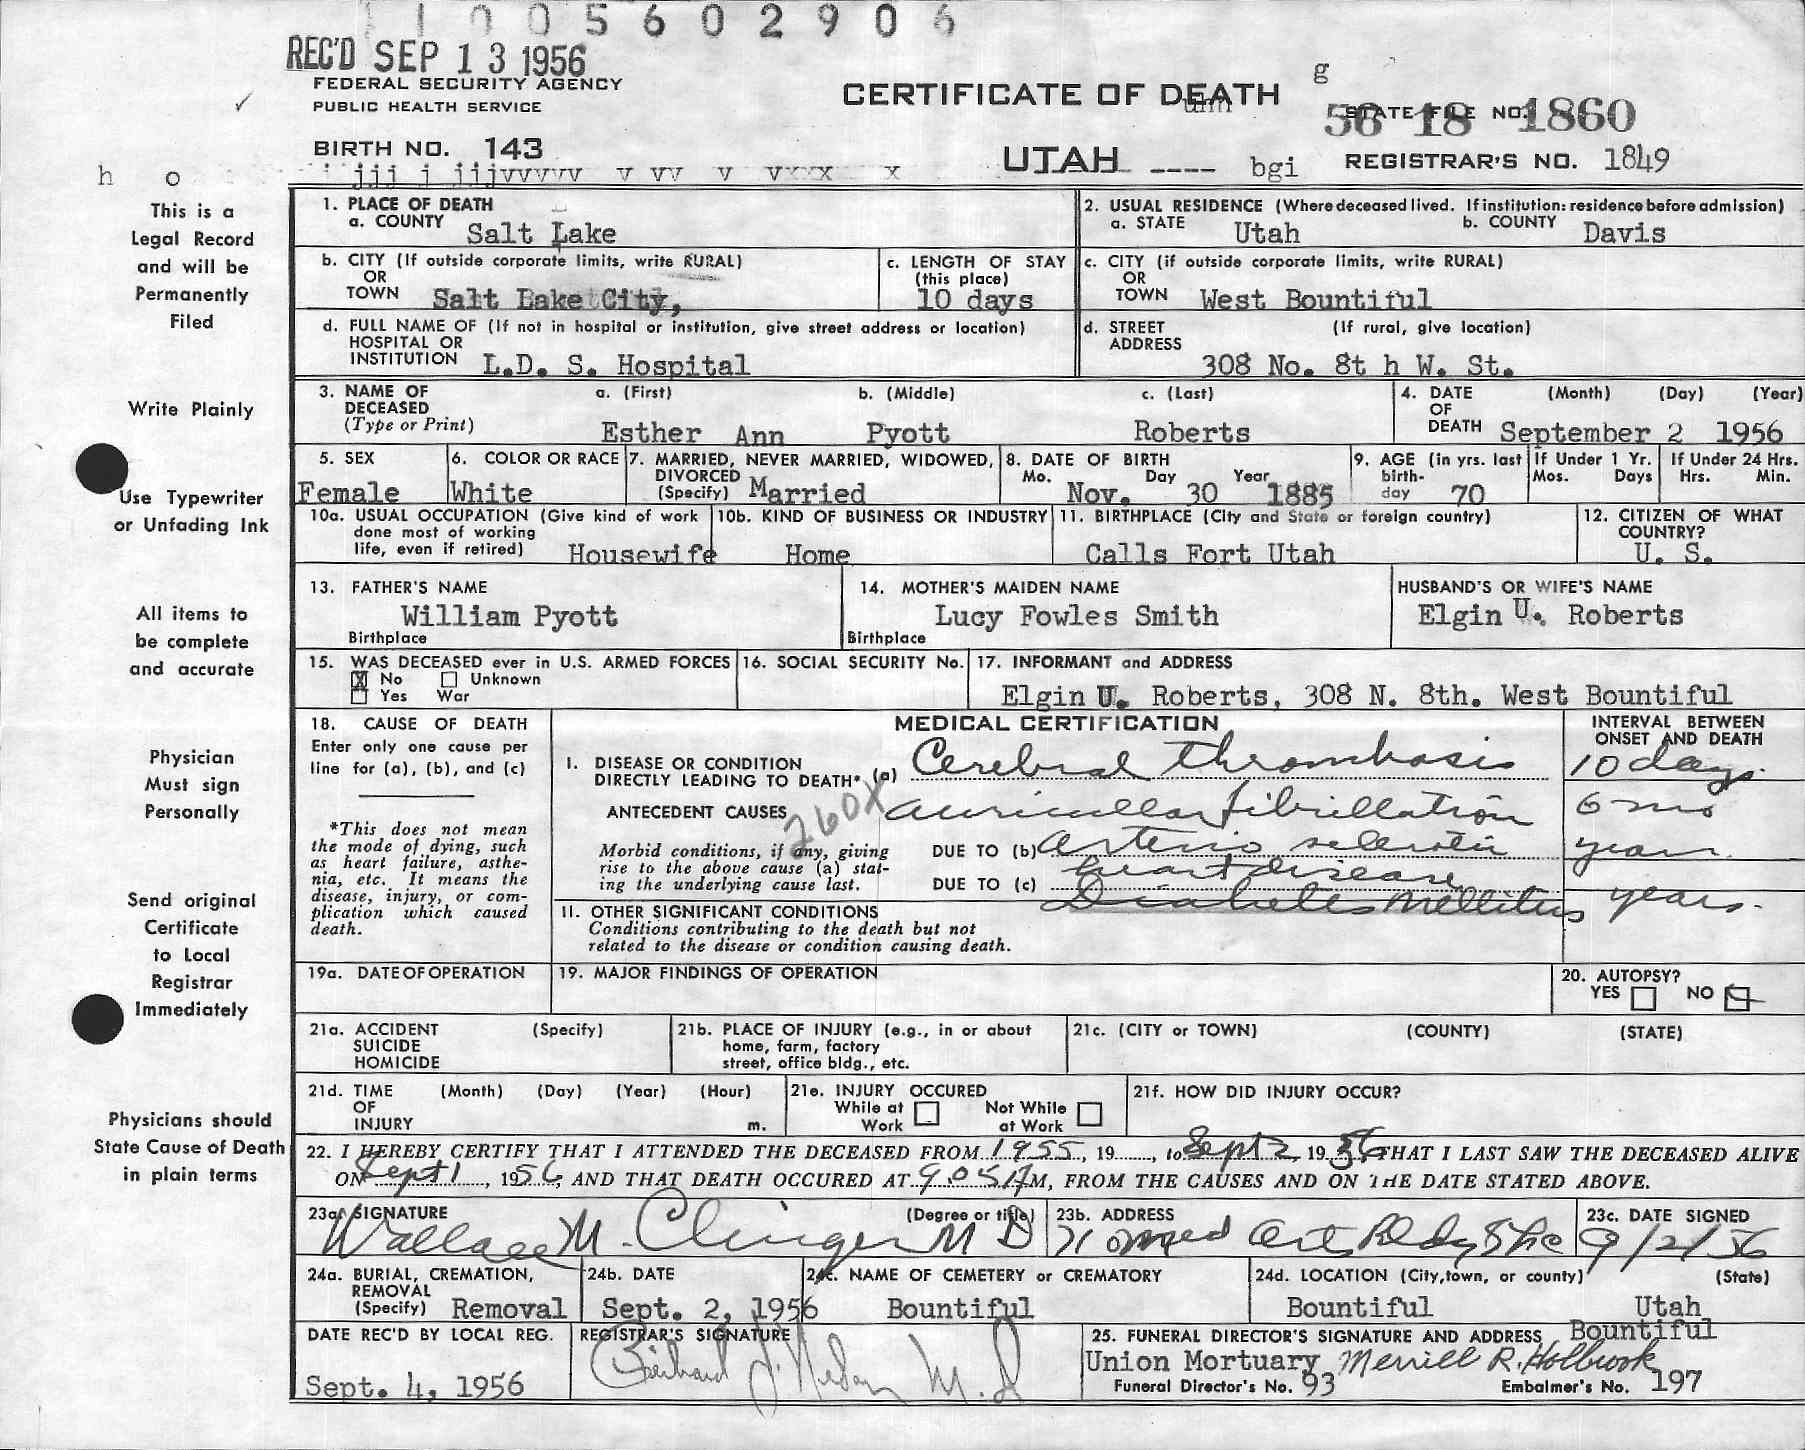 1 1 0 0 5 6 0 2 9 0 6
REC'D SEP 13 1956
FEDERAL SECURITY AGENCY
PUBLIC HEALTH SERVICE
CERTIFICATE OF DEATH
g
STATE FILE NO.
56 18 1860
BIRTH NO. 143
UTAH
bgi
REGISTRAR'S NO. 1849
h o
This is a
Legal Record
and will be
Permanently
Filed
Write Plainly
Use Typewriter
or Unfading Ink
All items to
be complete
and accurate
Physician
Must sign
Personally
Send original
Certificate
to Local
Registrar
Immediately
Physicians should
State Cause of Death
in plain terms
1. PLACE OF DEATH
a. COUNTY Salt Lake
2. USUAL RESIDENCE (Where deceased lived. If institution: residence before admission)
a. STATE Utah b. COUNTY Davis
b. CITY (If outside corporate limits, write RURAL)
OR
TOWN Salt Lake City,
c. LENGTH OF STAY
(this place)
10 days
c. CITY (if outside corporate limits, write RURAL)
OR
TOWN West Bountiful
d. FULL NAME OF (If not in hospital or institution, give street address or location)
HOSPITAL OR
INSTITUTION L.D. S. Hospital
d. STREET (If rural, give location)
ADDRESS
308 No. 8t h W. St.
3. NAME OF a. (First) b. (Middle) c. (Last)
DECEASED
(Type or Print) Esther Ann Pyott Roberts
4. DATE (Month) (Day) (Year)
OF
DEATH September 2 1956
5. SEX
Female
6. COLOR OR RACE
White
7. MARRIED, NEVER MARRIED, WIDOWED,
DIVORCED
(Specify) Married
8. DATE OF BIRTH
Mo. Day Year
Nov. 30 1885
9. AGE (in yrs. last
birth-
day 70
If Under 1 Yr.
Mos. Days
If Under 24 Hrs.
Hrs. Min.
10a. USUAL OCCUPATION (Give kind of work
done most of working
life, even if retired) Housewife
10b. KIND OF BUSINESS OR INDUSTRY
Home
11. BIRTHPLACE (City and State or foreign country)
Calls Fort Utah
12. CITIZEN OF WHAT
COUNTRY?
U. S.
13. FATHER'S NAME
William Pyott
Birthplace
14. MOTHER'S MAIDEN NAME
Lucy Fowles Smith
Birthplace
HUSBAND'S OR WIFE'S NAME
Elgin U. Roberts
15. WAS DECEASED ever in U.S. ARMED FORCES
X No Unknown
Yes War
16. SOCIAL SECURITY No.
17. INFORMANT and ADDRESS
Elgin U. Roberts, 308 N. 8th. West Bountiful
18. CAUSE OF DEATH
Enter only one cause per
line for (a), (b), and (c)
*This does not mean
the mode of dying, such
as heart failure, asthe-
nia, etc. It means the
disease, injury, or com-
plication which caused
death.
MEDICAL CERTIFICATION
INTERVAL BETWEEN
ONSET AND DEATH
I. DISEASE OR CONDITION
DIRECTLY LEADING TO DEATH* (a) Cerebral thrombosis 10 days
ANTECEDENT CAUSES auricular fibrillation 6 mo
260X
Morbid conditions, if any, giving
rise to the above cause (a) stat-
ing the underlying cause last.
DUE TO (b) Arterio sclerotic years
heart disease
DUE TO (c)
Diabetes Mellitus years.
II. OTHER SIGNIFICANT CONDITIONS
Conditions contributing to the death but not
related to the disease or condition causing death.
19a. DATE OF OPERATION
19. MAJOR FINDINGS OF OPERATION
20. AUTOPSY?
YES NO
21a. ACCIDENT (Specify)
SUICIDE
HOMICIDE
21b. PLACE OF INJURY (e.g., in or about
home, farm, factory
street, office bldg., etc.
21c. (CITY or TOWN) (COUNTY) (STATE)
21d. TIME (Month) (Day) (Year) (Hour)
OF
INJURY m.
21e. INJURY OCCURED
While at Work Not While at Work
21f. HOW DID INJURY OCCUR?
22. I HEREBY CERTIFY THAT I ATTENDED THE DECEASED FROM 1955, 19......, to Sept 2, 1956, THAT I LAST SAW THE DECEASED ALIVE
ON Sept 1, 1956, AND THAT DEATH OCCURED AT 9:05 AM, FROM THE CAUSES AND ON THE DATE STATED ABOVE.
23a. SIGNATURE (Degree or title)
Wallace M. Clinger MD
23b. ADDRESS
Med Arts Bldg
23c. DATE SIGNED
9/2/56
24a. BURIAL, CREMATION,
REMOVAL
(Specify) Removal
24b. DATE
Sept. 2, 1956
24c. NAME OF CEMETERY or CREMATORY
Bountiful
24d. LOCATION (City, town, or county) (State)
Bountiful Utah
DATE REC'D BY LOCAL REG.
Sept. 4, 1956
REGISTRAR'S SIGNATURE
M.D
25. FUNERAL DIRECTOR'S SIGNATURE AND ADDRESS Bountiful
Union Mortuary Merrill R. Holbrook
Funeral Director's No. 93 Embalmer's No. 197